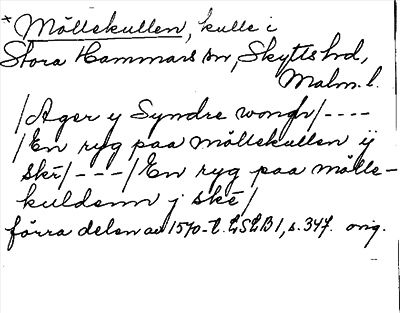 * Möllekullen, kulle i
Stora Hammars sn, Skytts hd,
Malm. l.
/Ager y Syndre wongh/----
/En ryg paa möllekullen ij
skē/---/En ryg paa mölle-
kuldenn j skē/
förra delen av 1570-t. LSLB1, s. 347. orig.